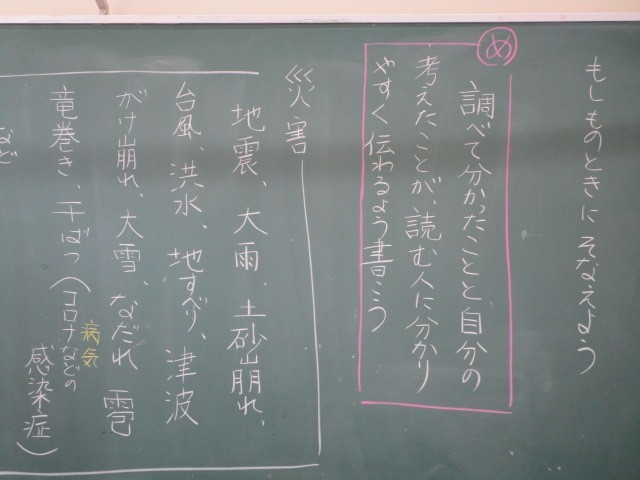 もしものときにそなえよう
め
調べて分かったことと自分の
考えたことが、読む人に分かり
やすく伝わるよう書こう
災害
地震、大雨、土砂崩れ、
台風、洪水、地すべり、津波
がけ崩れ、大雪、なだれ 雹
竜巻き、干ばつ(コロナなどの
病気
感染症)
など